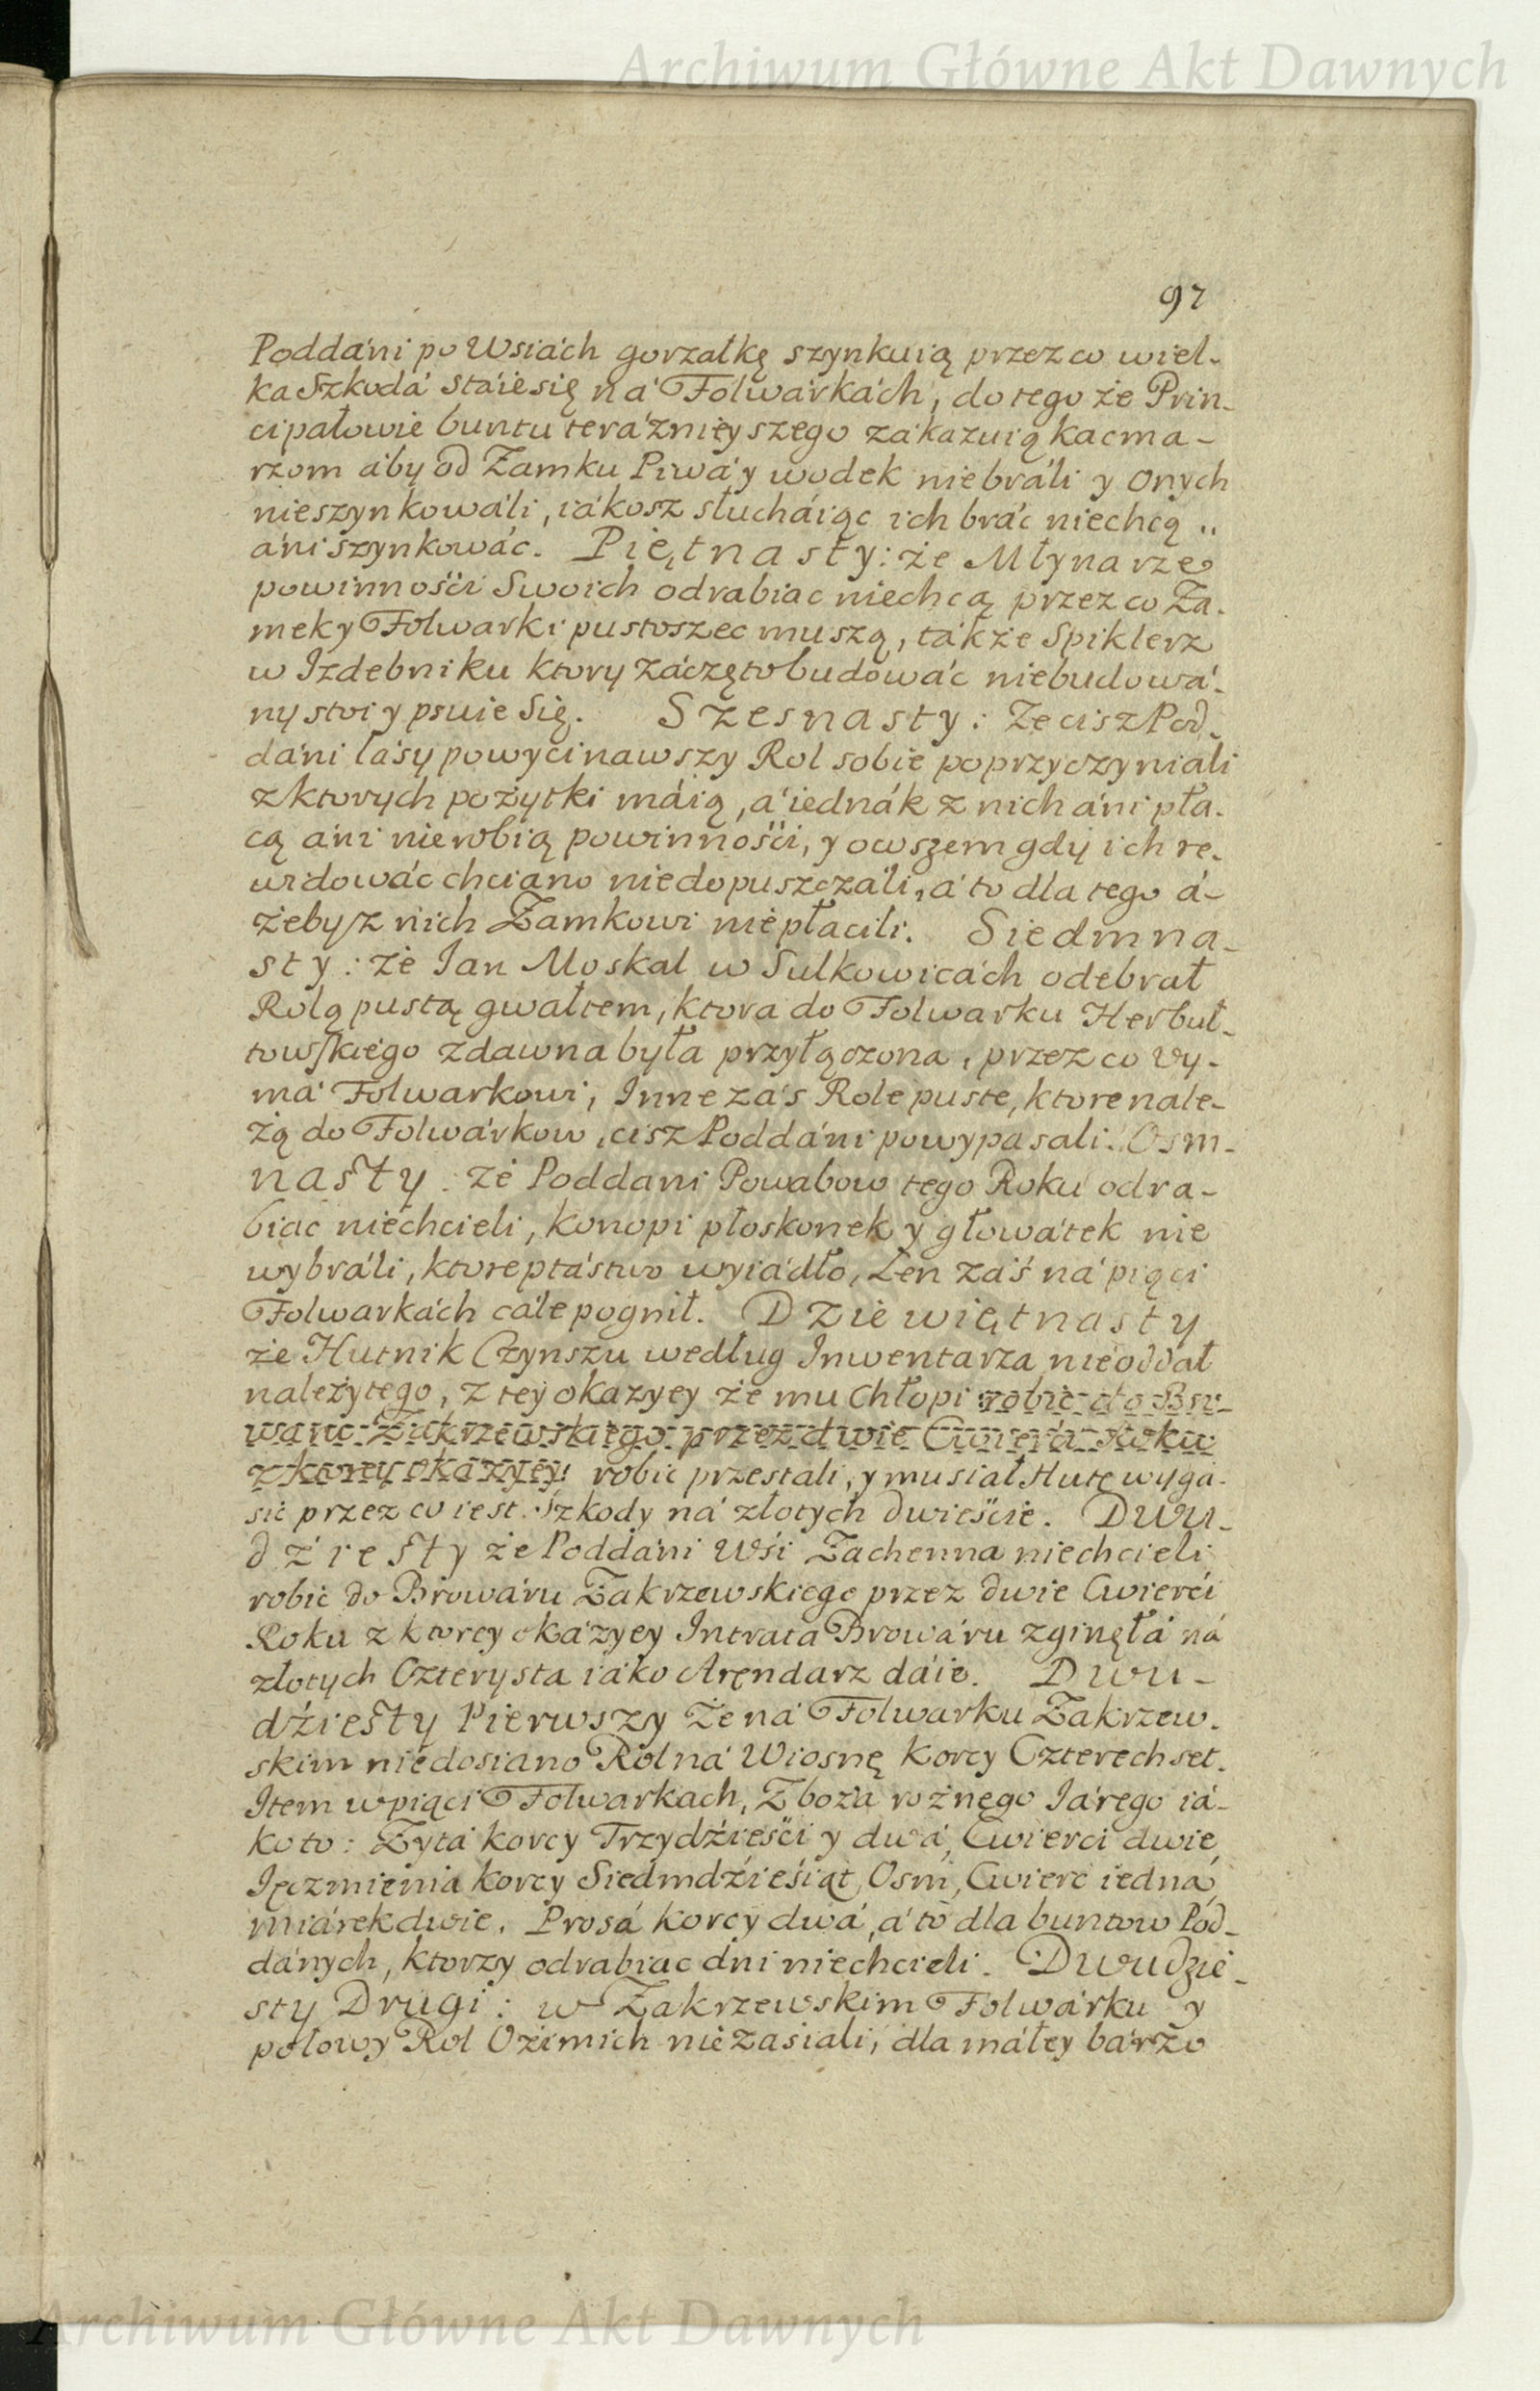 Archiwum Główne Akt Dawnych
97
Poddáni po Wsiách gorzałkę szynkuią przez co wiel-
ka Szkodá stáie się ná Folwárkách, do tego że Prin-
cipałowie buntu teráznieyszego zákazuią kacma-
rzom áby od Zamku Piwá y wodek niebráli y onych
nieszynkowáli, iákosz słucháiąc ich bráć niechcą
áni szynkowáć. Piętnasty: że Młynarze
powinnośći Swoich odrabiac niechcą przez co Za-
mek y Folwarki pustoszec muszą, tákże Spiklerz
w Izdebniku ktory záczęto budowáć niebudowá-
ny stoi y psuie Się. Szesnasty: Ze cisz Pod-
dáni lásy powycinawszy Rol sobie poprzyczyniáli
z ktorych pożytki máią, á iednák z nich áni pła-
cą áni nie robią powinnośći, y owszem gdy ich re-
widowáć chciano niedopuszczáli, á to dla tego á-
żeby z nich Zamkowi niepłacili. Siedmna-
sty: że Ian Moskal w Sulkowicách odebrał
Rolą pustą gwałtem, ktora do Folwarku Herbuł-
towskiego zdawna była przyłączona, przez co vy-
má Folwarkowi, Inne zás Role puste, ktore nale-
żą do Folwárkow, cisz Poddáni powypasali. Osm-
nasty: że Poddani Powabow tego Roku odra-
biac niechcieli, Konopi płoskonek y głowátek nie
wybráli, ktore ptástwo wyiádło, Len záś ná piąci
Folwarkách cále pognił. Dziewiętnasty
że Hutnik Czynszu według Inwentarza nieoddał
należytego, z tey okazyey że mu Chłopi robic do Bro-
waru Zakrzewskiego przez dwie Cwierci Roku
z ktorey okazyey robic przestali, y musiał Hutę wyga-
sic przez co iest Szkody ná złotych dwieście. Dwu-
dźiesty że Poddáni Wśi Zachenna niechcieli
robic do Browáru Zakrzewskiego przez dwie Cwierći
Roku z ktorey okázyey Intrata Browáru zginęłá ná
złotych Czterysta iáko Arendarz dáie. Dwu-
dźiesty Pierwszy Że ná Folwarku Zakrzew-
skim niedosiano Rol ná Wiosnę Korcy Czterechset.
Item w piąci Folwarkach, Zboża rożnego Iárego iá-
ko to: Żytá korcy Trzydźieśći y dwá, Cwierci dwie,
Ięczmienia korcy Siedmdźieśiąt Osm, Cwierc iedná,
miárek dwie. Prosá korcy dwá, á to dla buntow Pod-
dánych, ktorzy odrabiac dni niechcieli. Dwudzie-
sty Drugi: w Zakrzewskim Folwárku y
połowy Rol Oźimich niezasiali, dla máłey bárzo
Archiwum Główne Akt Dawnych